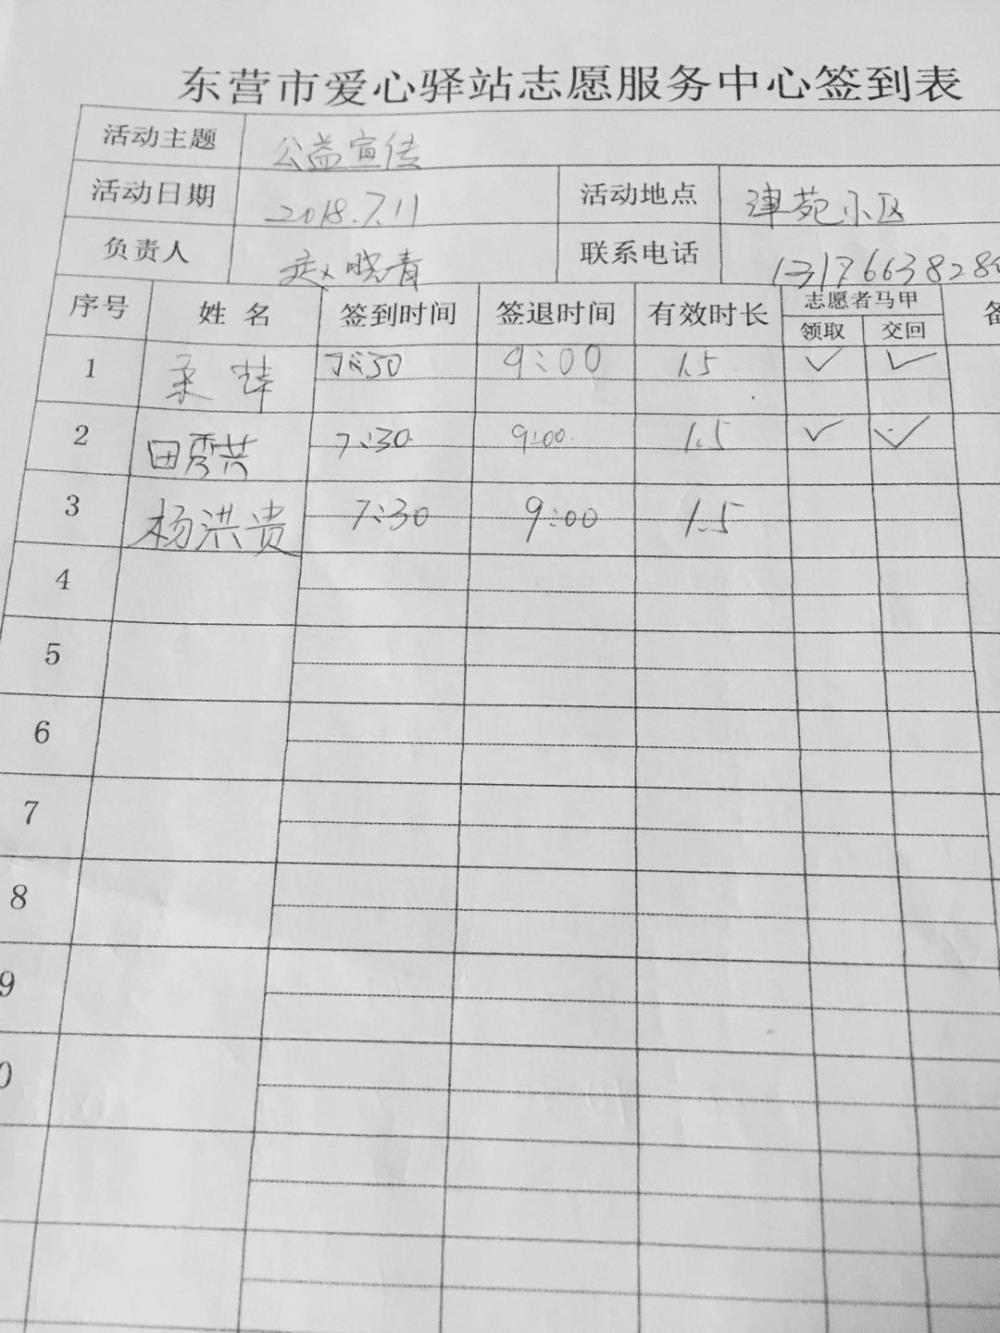 东营市爱心驿站志愿服务中心签到表
活动主题 公益宣传
活动日期 2018.7.11 活动地点 津苑小区
负责人 赵晓青 联系电话 1317663828
序号 姓名 签到时间 签退时间 有效时长 志愿者马甲
领取 交回
1 7:30 9:00 1.5 ✓ ✓
2 田秀芸 7:30 9:00 1.5 ✓ ✓
3 杨洪贵 7:30 9:00 1.5
4
5
6
7
8
9
0